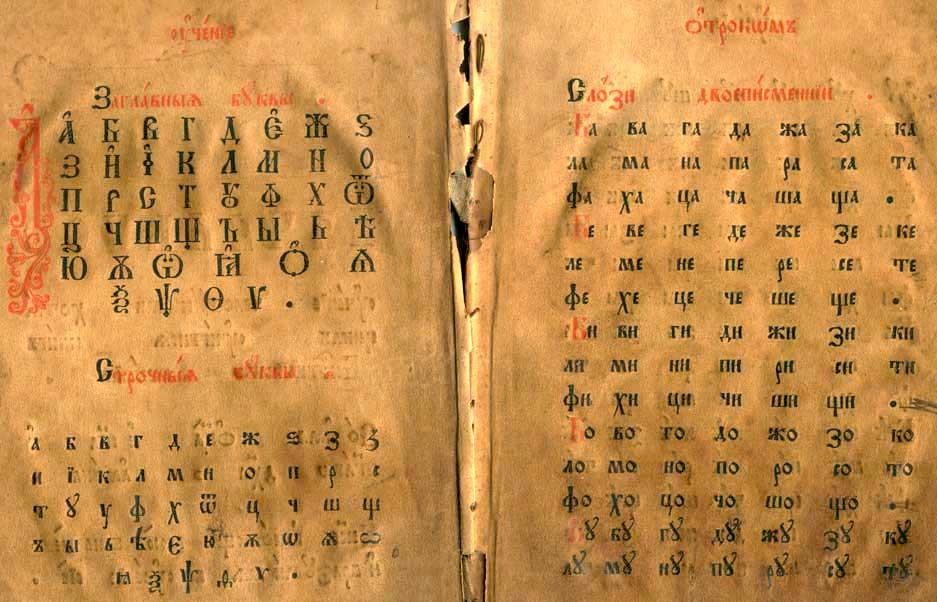 оучéнїе
Заглáвныѧ бꙋквы .
А Б В Г Д Є Ж Ѕ
З И Ї К Л М Н О
П Р С Т Ꙋ Ф Х Ѿ
Ц Ч Ш Щ Ъ Ы Ь Ѣ
Ю Ѫ Ѡ Ꙗ Ѻ Ѧ
Ѯ Ѱ Ѳ Ѵ .
Стрóчныѧ бꙋквы
а б в г д е ж ѕ з
и ї к л м н ю п р с
т ꙋ у ф х ѿ ц ч ш щ
ъ ы ь ѣ є ю ѫ ѡ ѧ
ѯ ѱ ѵ .
ѻ҆трокѡ́мъ
Слóзи двоепи́сменнїи .
Ба ва га да жа за ка
ла ма на па ра са та
фа ха ца ча ша ща .
Бе ве ге де же зе ке
ле ме не пе ре се те
фе хе це че ше ще .
Би ви ги ди жи зи ки
ли ми ни пи ри си ти
фи хи ци чи ши щи .
Бо во го до жо зо ко
ло мо но по ро со то
фо хо цо чо шо що .
Бꙋ вꙋ гꙋ дꙋ жꙋ зꙋ кꙋ
лꙋ мꙋ нꙋ пꙋ рꙋ сꙋ тꙋ